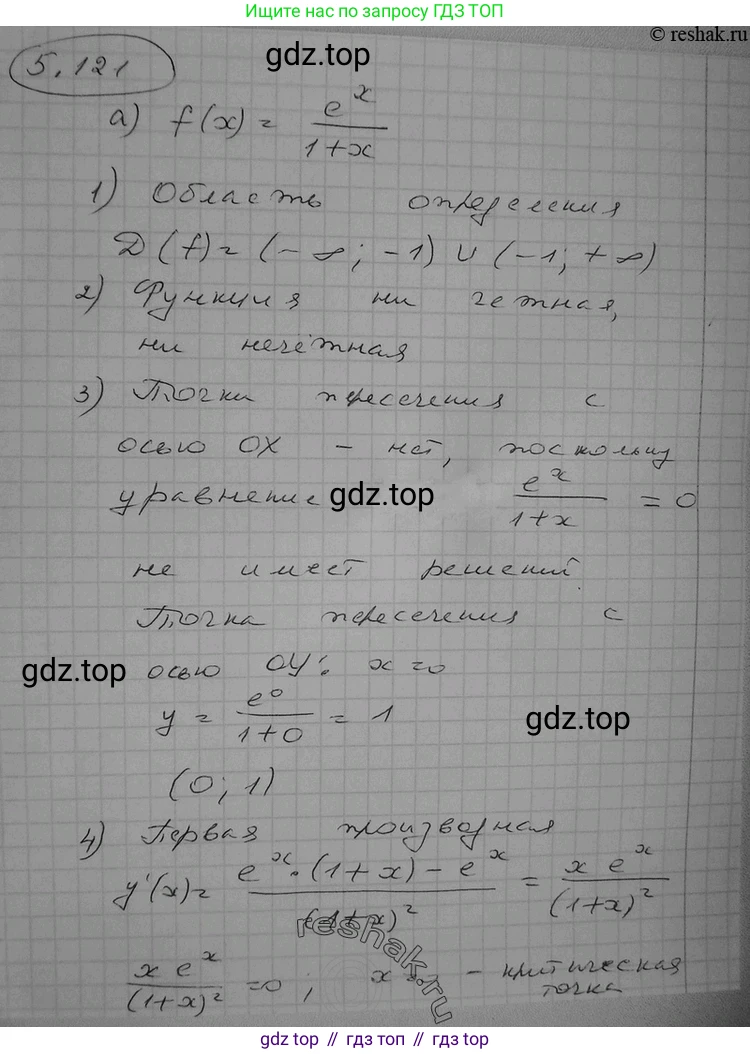 Ищите нас по запросу ГДЗ ТОП
© reshak.ru
5.121
gdz.top
а) f(x) = e^x / (1+x)
1) Область определения
D(f) = (-∞; -1) ∪ (-1; +∞)
2) Функция ни чётная,
ни нечётная
3) Точки пересечения с
осью OX - нет, поскольку
уравнение gdz.top e^x / (1+x) = 0
не имеет решений.
Точка пересечения с
gdz.top осью OY: x=0
y = e^0 / (1+0) = 1 gdz.top
(0; 1)
4) Первая производная
y'(x) = (e^x·(1+x) - e^x) / (1+x)^2 = x e^x / (1+x)^2
reshak.ru
x e^x / (1+x)^2 =0; x = - критическая
точка
gdz top // гдз топ // gdz.top // гдз.top